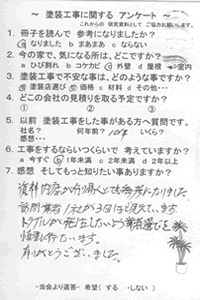 ～ 塗装工事に関する アンケート ～
これからの 研究資料として ご協力お願いします。
1. 冊子を読んで 参考になりましたか？
a なりました b まあまあ c ならない
2. 今の家で、気になる所は、どこですか？
a ひび割れ b コケカビ c 外壁 d 屋根 e 室内
3. 塗装工事で不安な事は、どのような事ですか？
a 塗装店選び b 価格 c 材料 d その他…
4. どこの会社の見積りを取る予定ですか？
① ② ③
5. 以前 塗装工事をした事がある方へ質問です。
社名？ 何年前？ 10年 いくら？
感想…
6. 工事をするならいつくらいで 考えていますか？
a 今すぐ b 1年未満 c 2年未満 d 2年以上
7. 感想 そしてもっと知りたい事ありますか？
資料内容が分り易くとても参考になりました。
訪問業者 1社が3日ほど見えています。
トラブルが発生しないよう業者選びを
慎重に行います。
ありがとうございました。
-当会より返答- 希望（ する ・しない ）